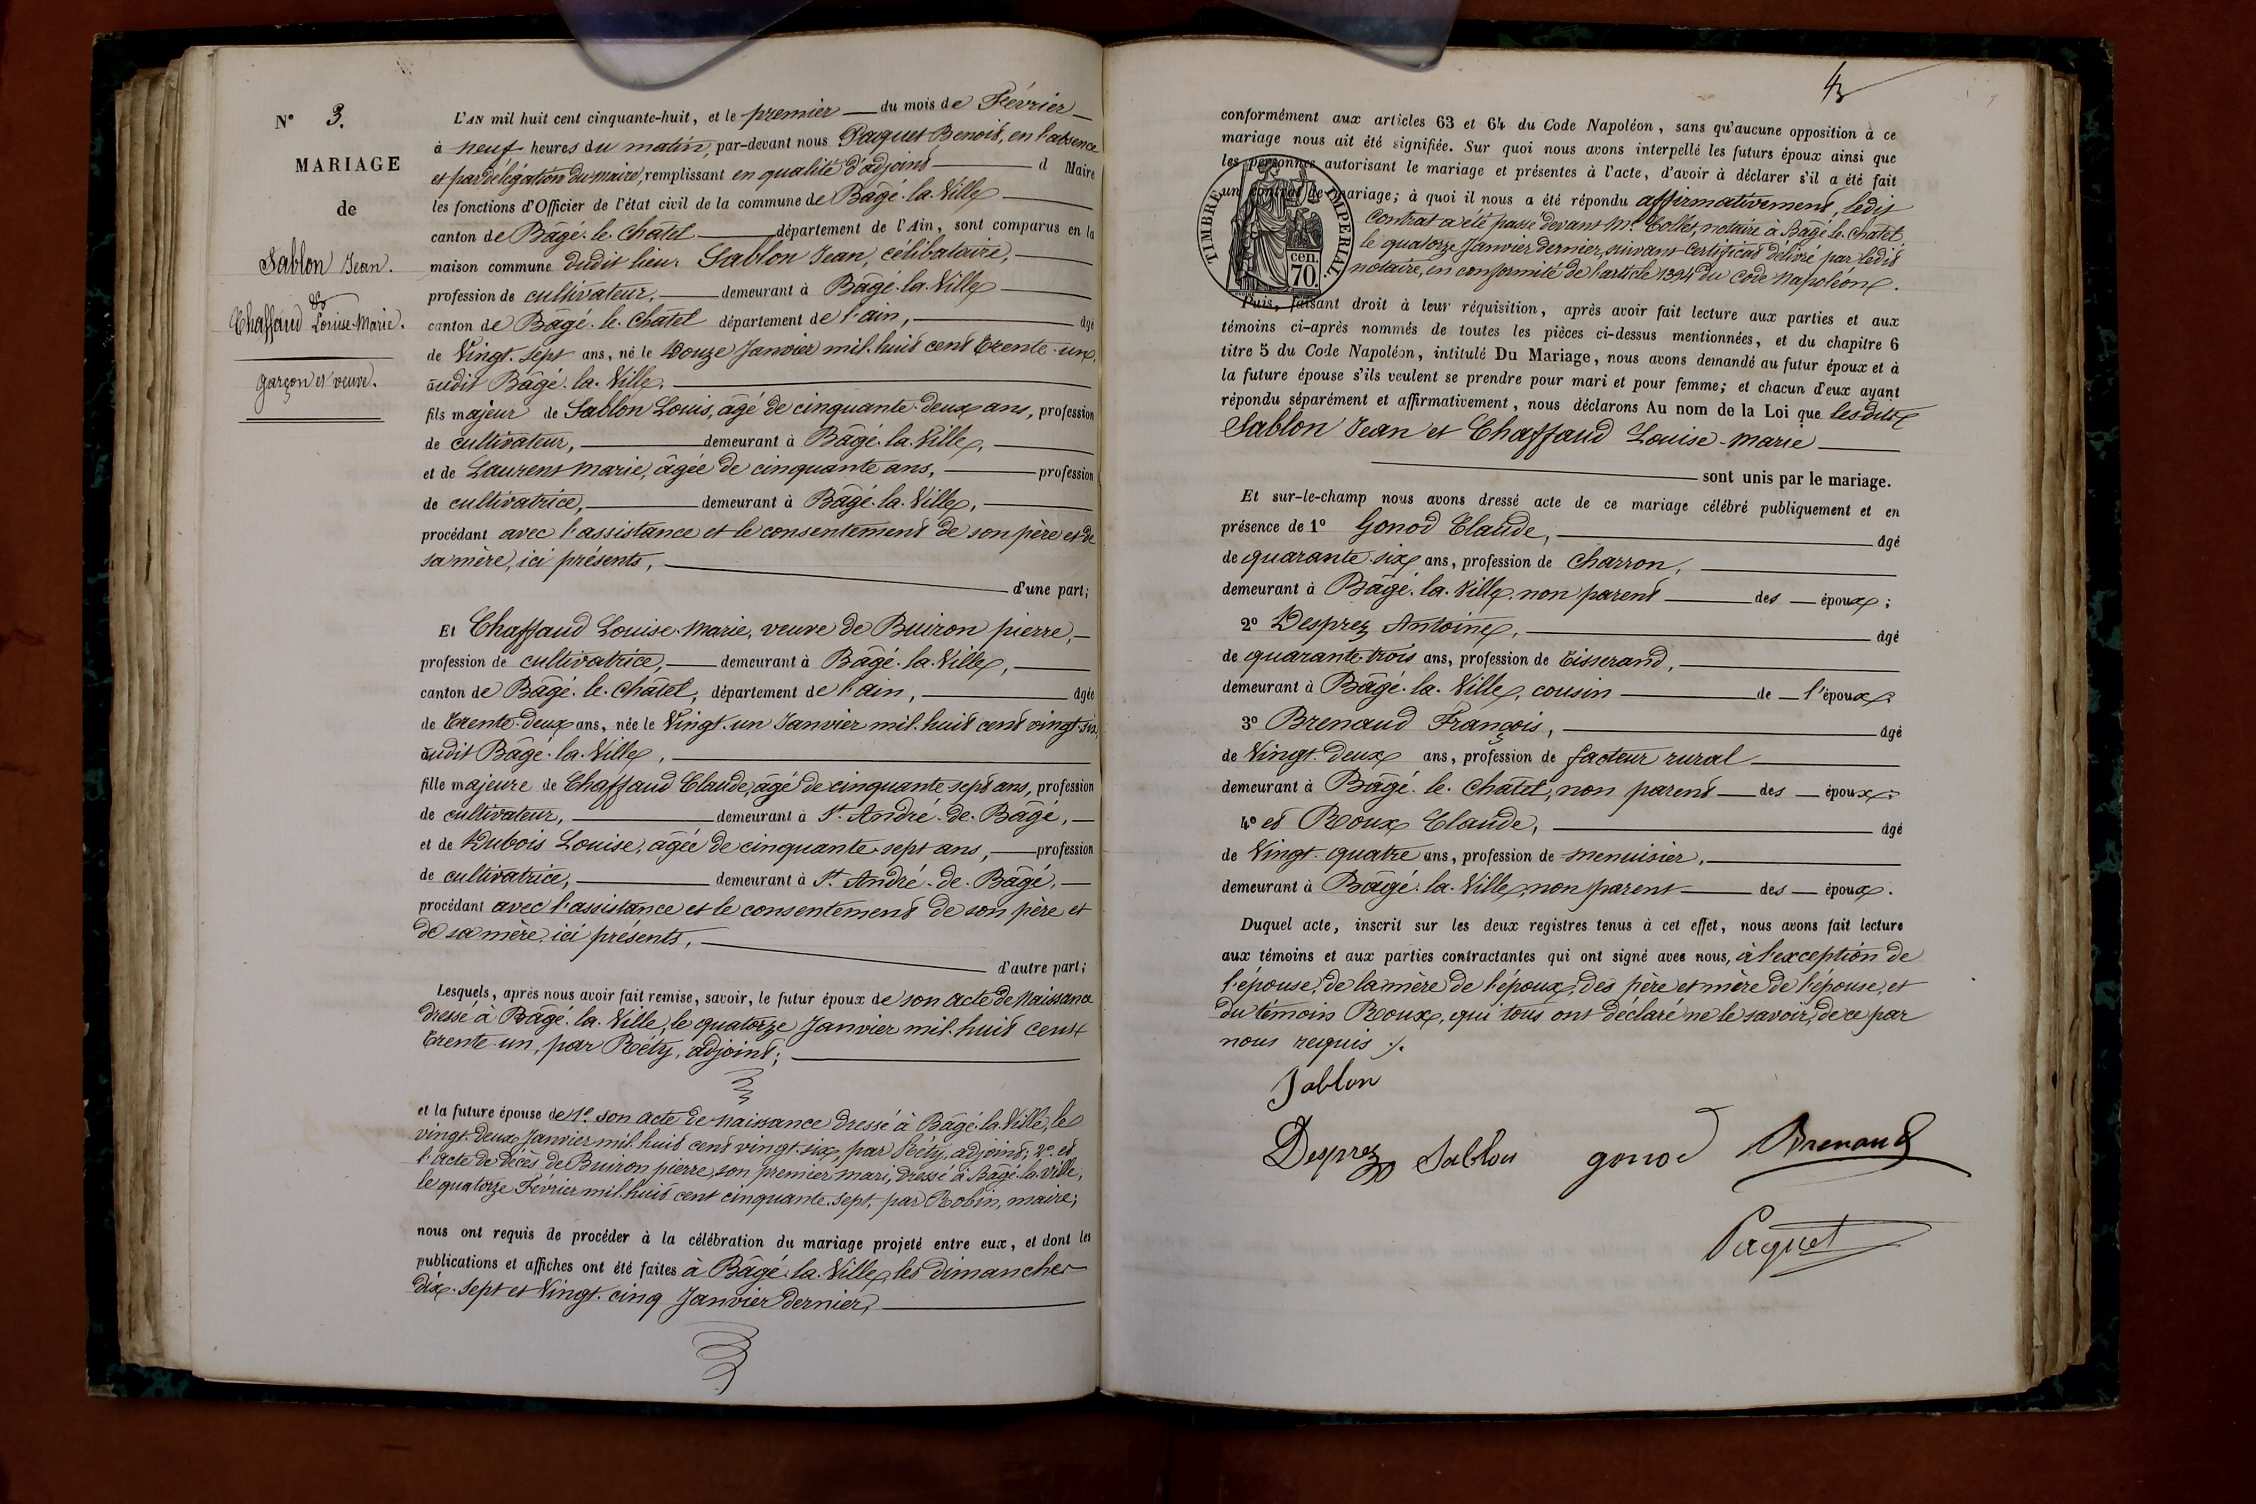 N° 3.
MARIAGE
de
Sablon Jean.
&
Chaffaud Louise-Marie.
garçon et veuve.
L'AN mil huit cent cinquante-huit, et le premier du mois de Février
à neuf heures du matin, par-devant nous Paquet Benoit, en l'absence
et par délégation du maire, remplissant en qualité d'adjoint d Maire
les fonctions d'Officier de l'état civil de la commune de Bâgé-la-Ville
canton de Bâgé-le-Châtel département de l'Ain, sont comparus en la
maison commune dudit lieu. Sablon Jean, célibataire,
profession de cultivateur, demeurant à Bâgé-la-Ville
canton de Bâgé-le-Châtel département de l'ain, âgé
de Vingt-sept ans, né le Douze Janvier mil-huit cent trente-un,
audit Bâgé-la-Ville,
fils majeur de Sablon Louis, âgé de cinquante-deux ans, profession
de cultivateur, demeurant à Bâgé-la-Ville,
et de Laurent Marie, âgée de cinquante ans, profession
de cultivatrice, demeurant à Bâgé-la-Ville,
procédant avec l'assistance et le consentement de son père et de
sa mère, ici présents,
d'une part;
Et Chaffaud Louise-Marie, veuve de Buiron pierre,
profession de cultivatrice, demeurant à Bâgé-la-Ville,
canton de Bâgé-le-Châtel, département de l'ain, âgée
de trente-deux ans, née le Vingt-un Janvier mil-huit cent vingt-six,
audit Bâgé-la-Ville,
fille majeure de Chaffaud Claude, âgé de cinquante-sept ans, profession
de cultivateur, demeurant à St. André-de-Bâgé,
et de Dubois Louise, âgée de cinquante-sept ans, profession
de cultivatrice, demeurant à St. André-de-Bâgé,
procédant avec l'assistance et le consentement de son père et
de sa mère, ici présents,
d'autre part;
Lesquels, après nous avoir fait remise, savoir, le futur époux de son acte de Naissance
dressé à Bâgé-la-Ville, le quatorze Janvier mil-huit cent
trente-un, par Réty, adjoint;
et la future épouse de 1° son acte de naissance dressé à Bâgé-la-Ville, le
vingt-deux Janvier mil-huit cent vingt-six, par Réty, adjoint; 2° et
l'acte de décès de Buiron pierre, son premier mari, dressé à Bâgé-la-Ville,
le quatorze Février mil-huit cent cinquante-sept, par Robin, maire;
nous ont requis de procéder à la célébration du mariage projeté entre eux, et dont les
publications et affiches ont été faites à Bâgé-la-Ville, les dimanches
dix-sept et Vingt-cinq Janvier dernier,
43
conformément aux articles 63 et 64 du Code Napoléon, sans qu'aucune opposition à ce
mariage nous ait été signifiée. Sur quoi nous avons interpellé les futurs époux ainsi que
les personnes autorisant le mariage et présentes à l'acte, d'avoir à déclarer s'il a été fait
un contrat de mariage; à quoi il nous a été répondu affirmativement, ledit
contrat a été passé devant Me. Collet, notaire à Bâgé-le-Châtel,
le quatorze Janvier dernier, suivant Certificat délivré par ledit
notaire, en conformité de l'article 1394 du Code Napoléon.
TIMBRE IMPERIAL.
cen.
70.
Puis, faisant droit à leur réquisition, après avoir fait lecture aux parties et aux
témoins ci-après nommés de toutes les pièces ci-dessus mentionnées, et du chapitre 6
titre 5 du Code Napoléon, intitulé Du Mariage, nous avons demandé au futur époux et à
la future épouse s'ils veulent se prendre pour mari et pour femme; et chacun d'eux ayant
répondu séparément et affirmativement, nous déclarons Au nom de la Loi que lesdits
Sablon Jean et Chaffaud Louise-Marie
sont unis par le mariage.
Et sur-le-champ nous avons dressé acte de ce mariage célébré publiquement et en
présence de 1° Gonod Claude, âgé
de quarante-six ans, profession de charron,
demeurant à Bâgé-la-Ville, non parent des époux;
2° Desprez Antoine, âgé
de quarante-trois ans, profession de tisserand,
demeurant à Bâgé-la-Ville, cousin de l'époux;
3° Brenaud François, âgé
de Vingt-deux ans, profession de facteur rural
demeurant à Bâgé-le-Châtel, non parent des époux;
4° et Roux Claude, âgé
de Vingt-quatre ans, profession de menuisier,
demeurant à Bâgé-la-Ville, non parent des époux.
Duquel acte, inscrit sur les deux registres tenus à cet effet, nous avons fait lecture
aux témoins et aux parties contractantes qui ont signé avec nous, à l'exception de
l'épouse, de la mère de l'époux, des père et mère de l'épouse, et
du témoin Roux, qui tous ont déclaré ne le savoir, de ce par
nous requis ./.
Sablon
Desprez Sablon gonod Brenaud
Paquet